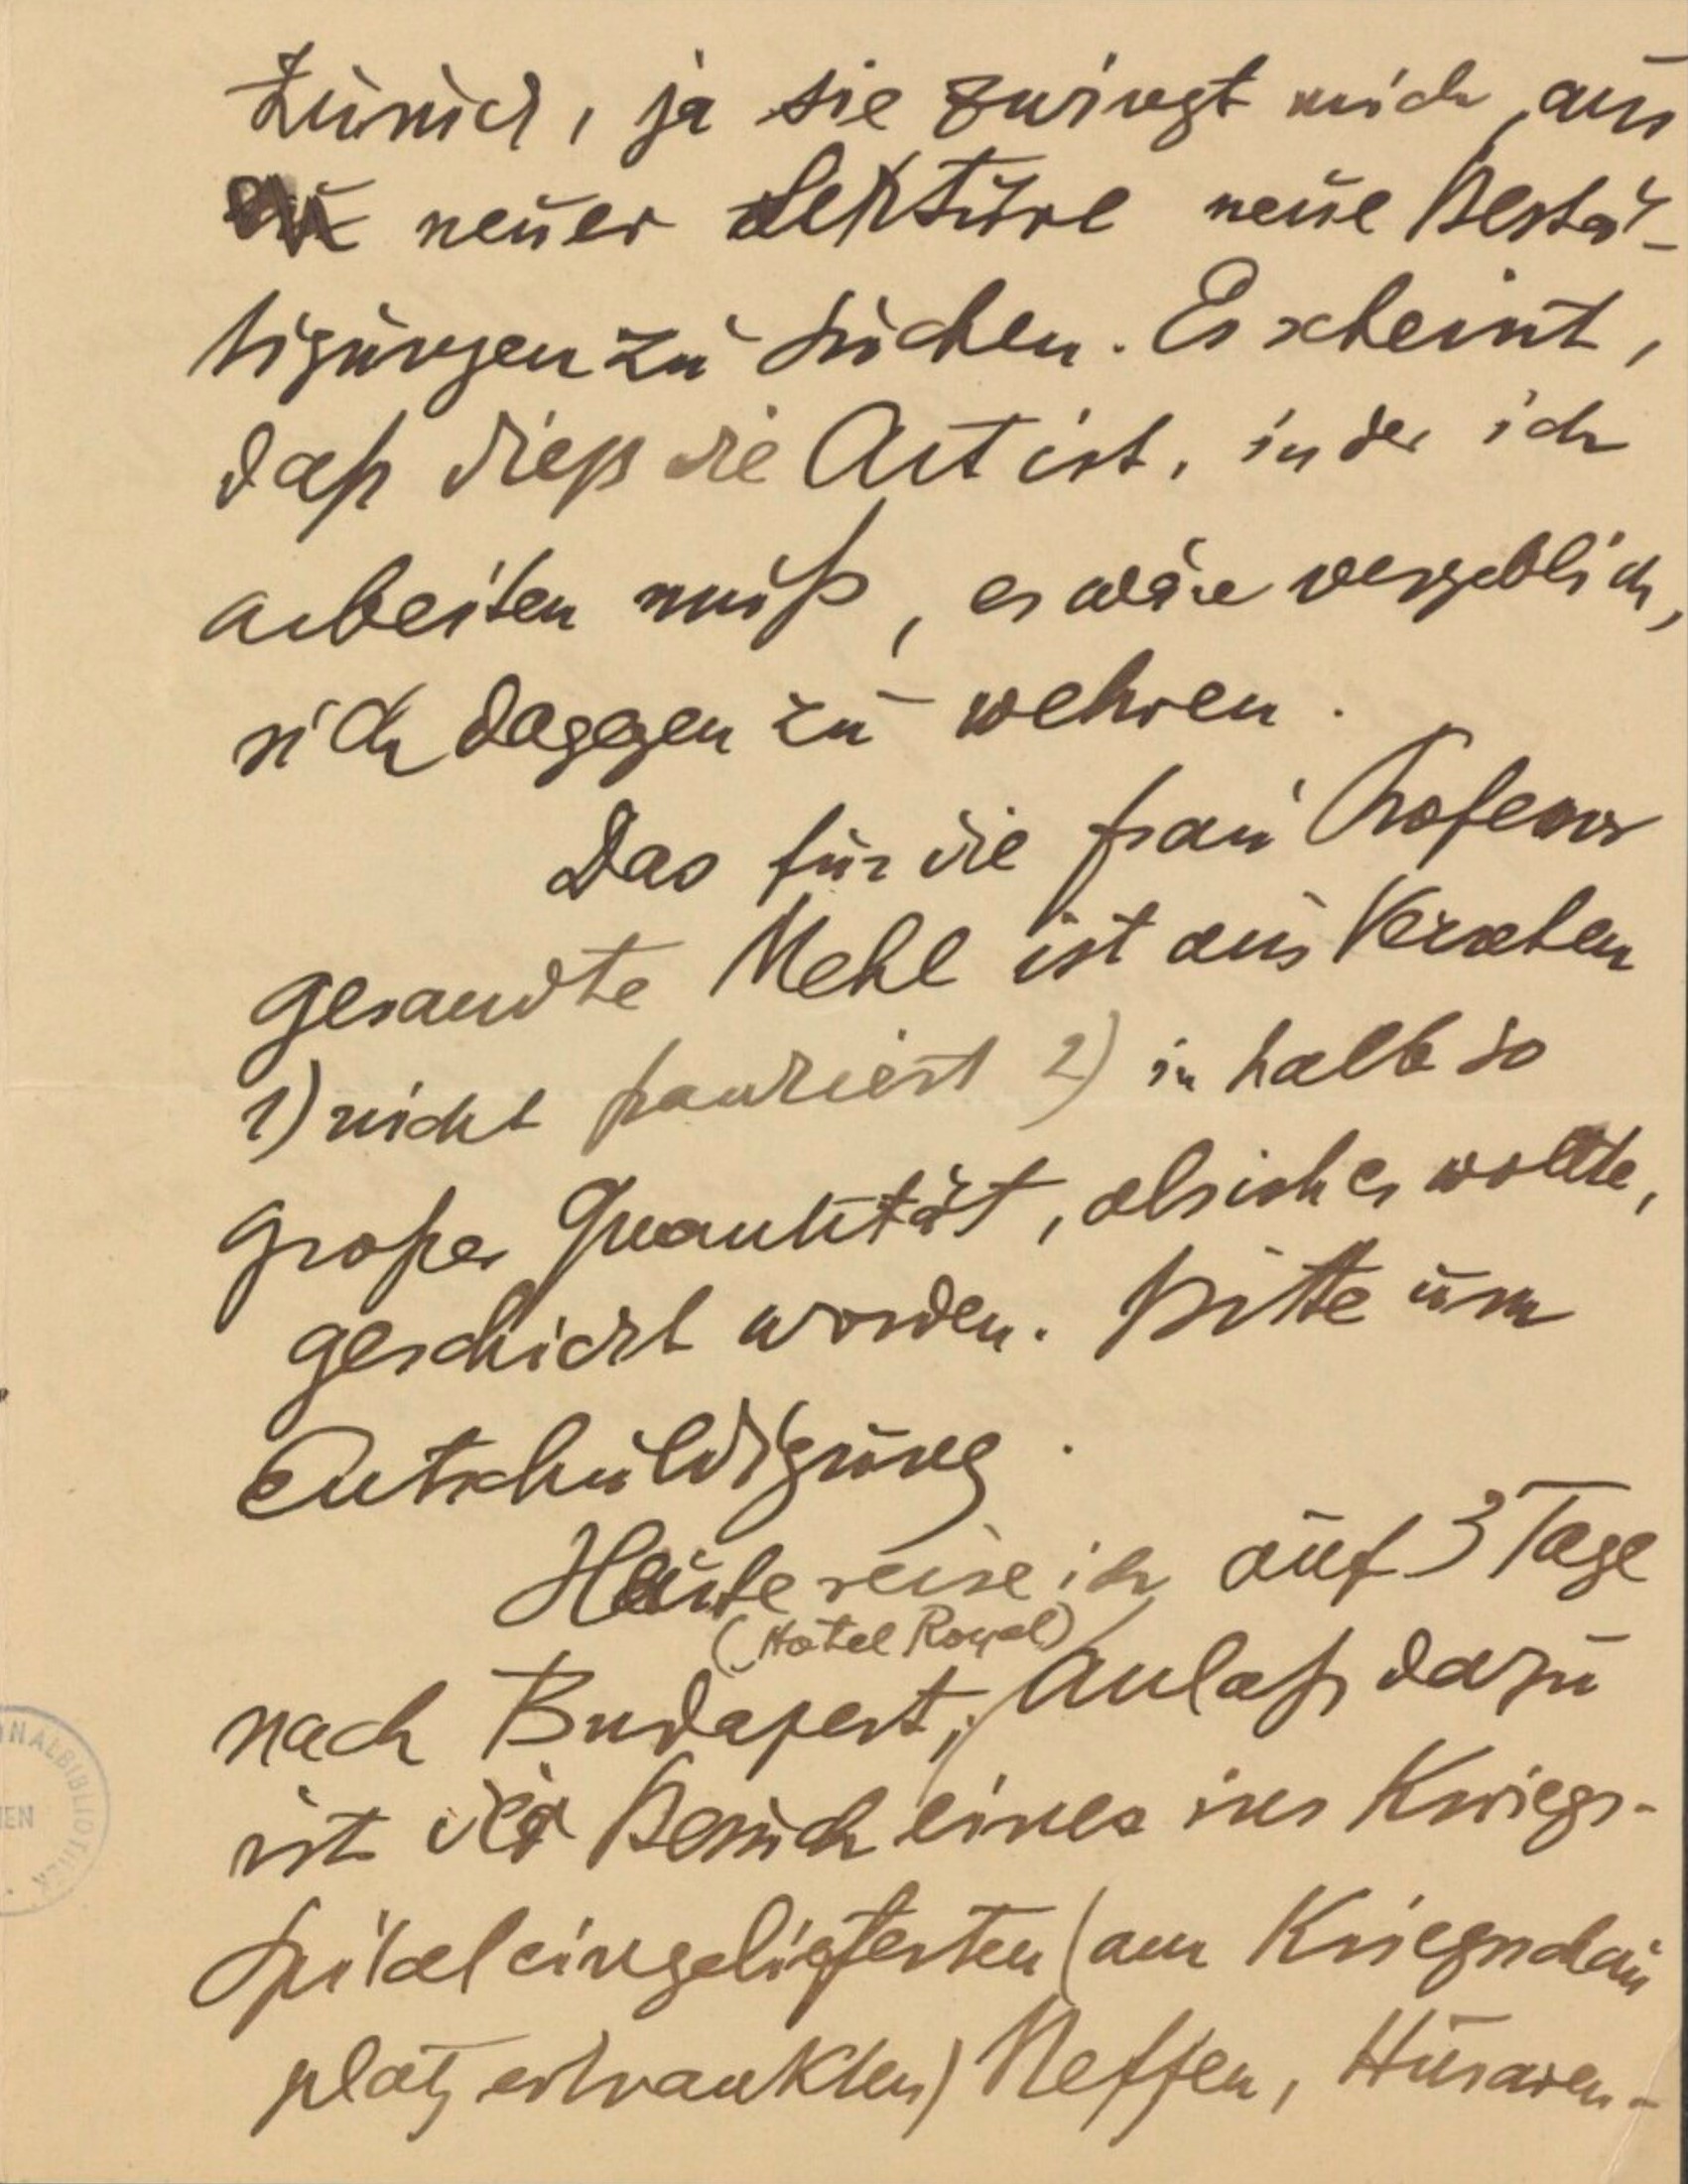 zurück, ja sie zwingt mich, aus
neuer Lektüre neue Bestä-
tigungen zu suchen. Es scheint,
daß dieß die Art ist, in der ich
arbeiten muß, es wäre vergeblich,
sich dagegen zu wehren.
Das für die Frau Professor
gesandte Mehl ist aus Versehen
1) nicht frankiert 2) in halb so
großer Quantität, als ich es wollte,
geschickt worden. Bitte um
Entschuldigung.
Heute reise ich auf 3 Tage
(Hotel Royal)
nach Budapest; Anlaß dazu
ist der Besuch eines ins Kriegs-
spital eingelieferten (am Kriegsschau
platz erkrankten) Neffen, Husaren-
NALBIBLIOTHEK
IEN